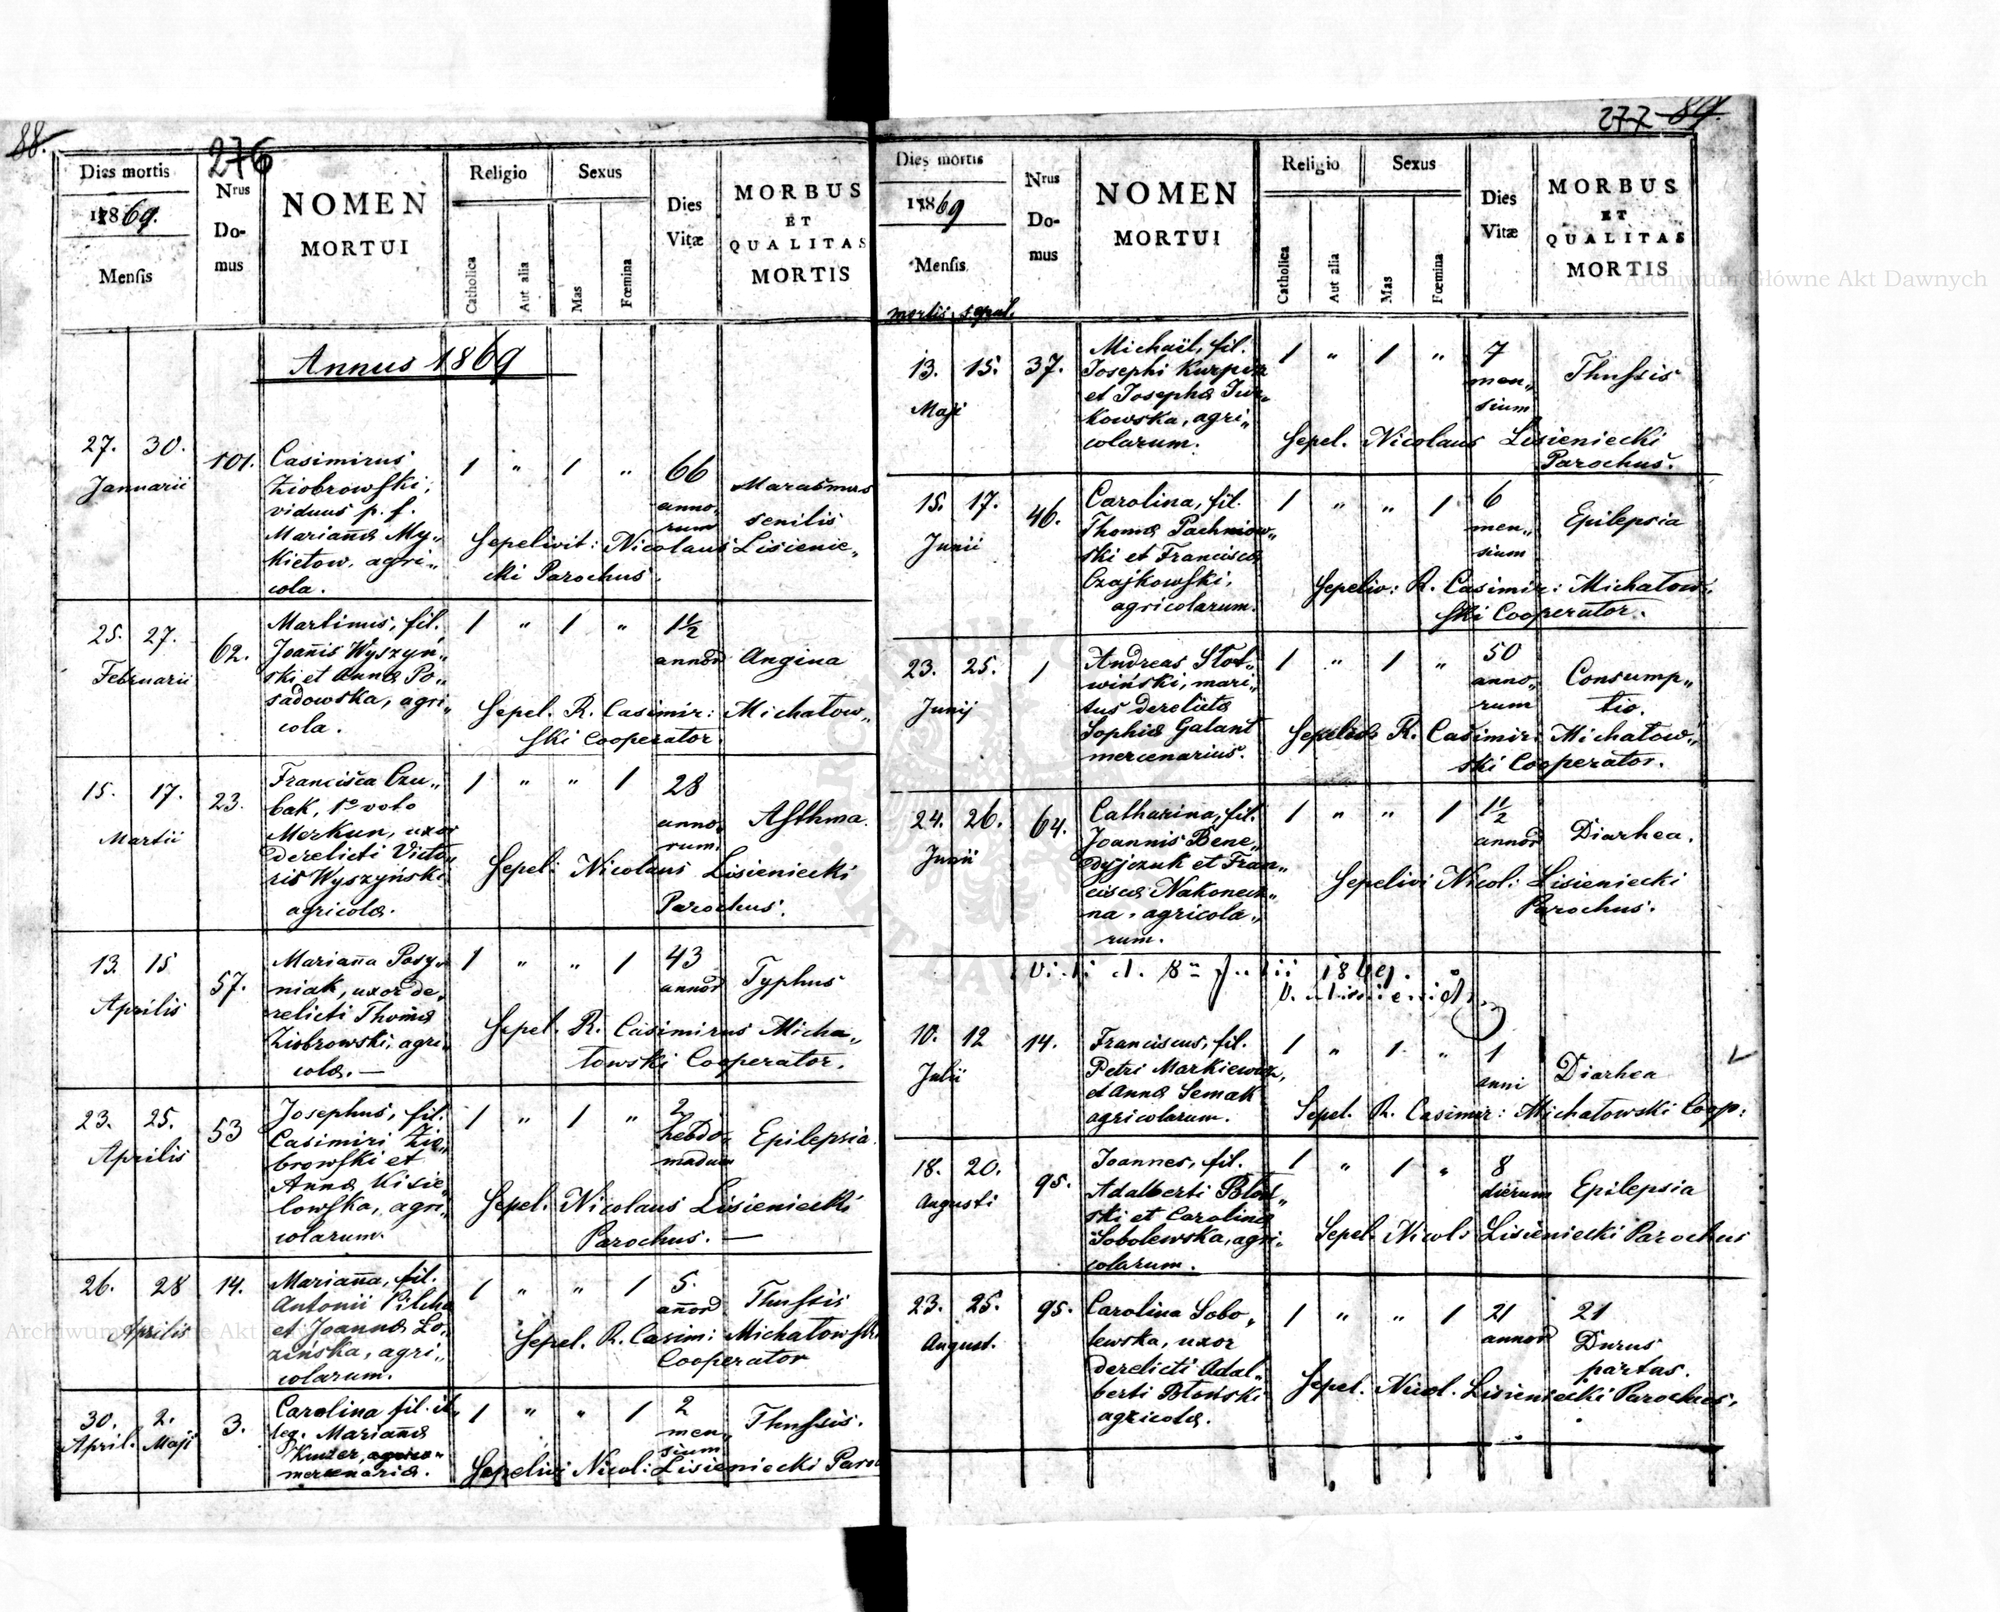 88.
276
Dies mortis
1869.
Mensis
Nrus
Do-
mus
NOMEN
MORTUI
Religio
Catholica
Aut alia
Sexus
Mas
Fœmina
Dies
Vitæ
MORBUS
ET
QUALITAS
MORTIS
Annus 1869
27. 30.
Januarii
101.
Casimirus
Ziobrowski,
viduus p. f.
Marianæ My„
kietow, agri„
cola.
1 „ 1 „
66
anno„
rum
Marasmus
senilis
Sepelivit: Nicolaus Lisienie„
cki Parochus.
25. 27.
Februarii
62.
Martinus, fil.
Joañis Wyszyń„
ski et Annæ Po„
sadowska, agri„
cola.
1 „ 1 „
1½
annor
Angina
Sepel. R. Casimir: Michałow„
ski Cooperator.
15. 17.
Martii
23.
Francisca Czu„
bak, 1º voto
Merkun, uxor
derelicti Victo„
ris Wyszyński
agricolæ.
1 „ „ 1
28
anno„
rum.
Asthma.
Sepel: Nicolaus Lisieniecki
Parochus.
13. 15
Aprilis
57.
Mariaña Posy„
niak, uxor de„
relicti Thomæ
Ziobrowski, agri„
colæ. —
1 „ „ 1
43
annor
Typhus
Sepel. R. Casimirus Micha„
łowski Cooperator.
23. 25.
Aprilis
53
Josephus, fil.
Casimiri Zio„
browski et
Annæ Kisie„
lowska, agri„
colarum.
1 „ 1 „
2
hebdo„
madum
Epilepsia.
Sepel. Nicolaus Lisieniecki
Parochus. —
26. 28
Aprilis
14.
Mariaña, fil.
Antonii Pilcha
et Joannæ Ło„
zińska, agri„
colarum.
1 „ „ 1
5.
añor
Thussis
Sepel. R. Casim: Michałowski
Cooperator
30. 2.
April. Maji
3.
Carolina fil. il„
leg. Marianæ
mercenariæ.
1 „ „ 1
2
men„
sium
Thussis.
Sepelivi Nicol: Lisieniecki Paro
277 89.
Dies mortis
1869
Mensis
mortis sepul.
Nrus
Do-
mus
NOMEN
MORTUI
Religio
Catholica
Aut alia
Sexus
Mas
Fœmina
Dies
Vitæ
MORBUS
ET
QUALITAS
MORTIS
13. 15.
Maji
37.
Michaël, fil.
Josephi Kurpisz
et Josephæ Jur„
kowska, agri„
colarum.
1 „ 1 „
7
men„
sium
Thussis
Sepel. Nicolaus Lisieniecki
Parochus.
15. 17.
Junii
46.
Carolina, fil.
Thomæ Pachniow„
ski et Franciscæ
Czajkowski,
agricolarum.
1 „ „ 1
6
men„
sium
Epilepsia
Sepeliv: R. Casimir: Michałow„
ski Cooperator.
23. 25.
Junij
1
Andreas Słot„
wiński, mari„
tus derelictæ
Sophiæ Galant
mercenarius.
1 „ 1 „
50
anno„
rum
Consump„
tio.
R. Casimir: Michałow„
ski Cooperator.
24. 26.
Junii
64.
Catharina, fil.
Joannis Bene„
dyjczuk et Fran„
ciscæ Nakonecz„
na, agricola„
rum.
1 „ „ 1
1½
annor
Diarhea.
Sepelivi Nicol: Lisieniecki
Parochus.
1869.
10. 12
Julii
14.
Franciscus, fil.
Petri Markiewicz,
et Annæ Semak
agricolarum.
1 „ 1 „
1
anni
Diarhea
Sepel. R. Casimir: Michałowski Coop:
18. 20.
Augusti
95.
Joannes, fil.
Adalberti Błoń„
ski et Carolinæ
Sobolewska, agri„
colarum.
1 „ 1 „
8
dierum
Epilepsia
Sepel. Nicol: Lisieniecki Parochus
23. 25.
August.
95.
Carolina Sobo„
lewska, uxor
derelicti Adal„
berti Błoński
agricolæ.
1 „ „ 1
21
annor
21
Durus
partas.
Sepel. Nicol. Lisieniecki Parochus.
Archiwum Główne Akt Dawnych